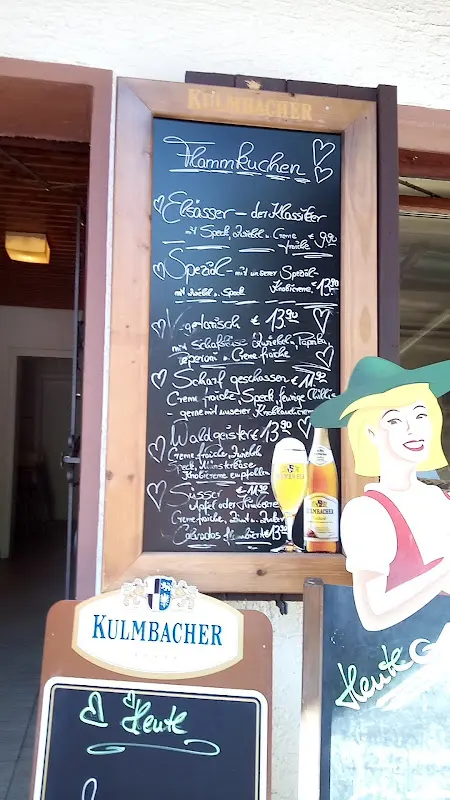 KULMBACHER
Flammkuchen
Elsässer - der Klassiker
mit Speck, Zwiebel u. Creme € 9,90
fraîche
Spezial - mit unserer Spezial-
mit Zwiebel u. Speck Knobicreme € 13,90
Vegetarisch € 13,90
mit Schafskäse, Zwiebeln, Paprika,
Peperoni u. Creme fraiche
Scharf geschossen € 11,90
Creme fraiche, Speck, feurige Chillis
- gerne mit unserer Knoblauchcreme
Waldgeister € 13,90
Creme fraiche Zwiebeln
Speck, Münsterkäse
Knobicreme empfohlen
Süsser € 11,90
Apfel oder
Creme fraiche, Zimt u. Zucker
flambiert € 13,90
KULMBACHER
KULMBACHER
Heute
Heute